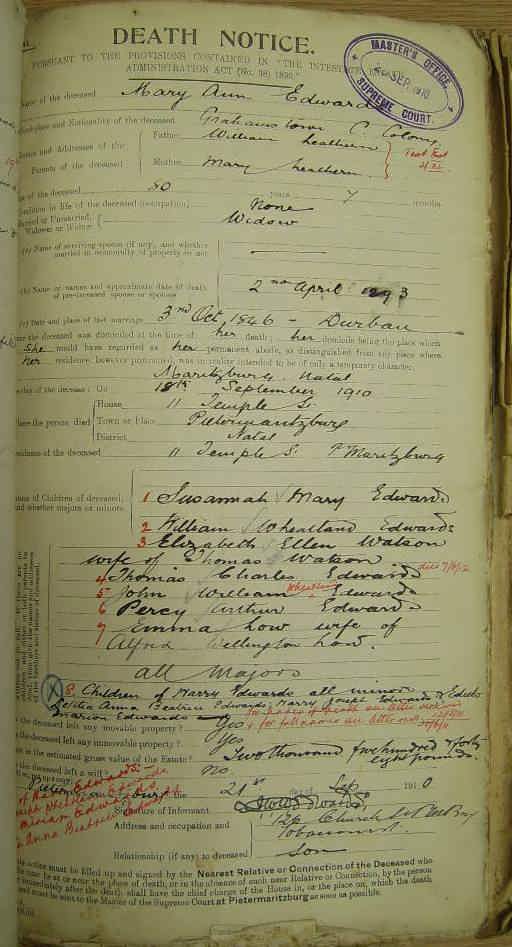 DEATH NOTICE.
PURSUANT TO THE PROVISIONS CONTAINED IN "THE INTESTATE
ADMINISTRATION ACT (No. 38) 1899."
MASTER'S OFFICE.
SEP. 1910
SUPREME COURT.
Name of the deceased Mary Ann Edwards
Birthplace and Nationality of the deceased Grahamstown C. Colony
Names and Addresses of the Parents of the deceased
Father William
Mother Mary
Age of the deceased 80 years 7 months
Condition in life of the deceased (occupation) None
Married or Unmarried, Widower or Widow Widow
(a) Name of surviving spouse (if any), and whether
married in community of property or not
(b) Name or names and approximate date of death
of pre-deceased spouse or spouses 2nd April 1893
(c) Date and place of last marriage 3rd Oct 1846 - Durban
the deceased was domiciled at the time of her death; her domicile being the place where
She would have regarded as her permanent abode, as distinguished from any place where
her residence, however protracted, was in reality intended to be only of a temporary character.
Maritzburg. Natal
day of the decease: On 18th September 1910
Where the person died
House 11 Temple St
Town or Place Pietermaritzburg
District Natal
Residence of the deceased 11 Temple St P Maritzburg
Names of Children of deceased,
and whether majors or minors
1 Susannah Mary Edwards
2 William Wheatland Edwards
3 Elizabeth Ellen Watson
wife of Thomas Watson
4 Thomas Charles Edwards
5 John William Edwards
6 Percy Arthur Edwards
7 Emma Low wife of
Alfred Wellington Low.
all Majors
8. Children of Harry Edwards all minors
Letitia Anna Beatrice Edwards, Harry Joseph Edwards &
Marion Edwards
the deceased left any movable property? Yes
the deceased left any immovable property? Yes
is the estimated gross value of the Estate? Two thousand five hundred & forty
eight pounds.
the deceased left a will? No
the 21st day of Sep 1910
Signature of Informant.
Address and occupation 126 Church St PMBurg
Tobacconist.
Relationship (if any) to deceased Son
notice must be filled up and signed by the Nearest Relative or Connection of the Deceased who
be at or near the place of death, or in the absence of such near Relative or Connection, by the person
immediately after the death, shall have the chief charge of the House in, or the place on, which the death
and must be sent to the Master of the Supreme Court at Pietermaritzburg as soon as possible.